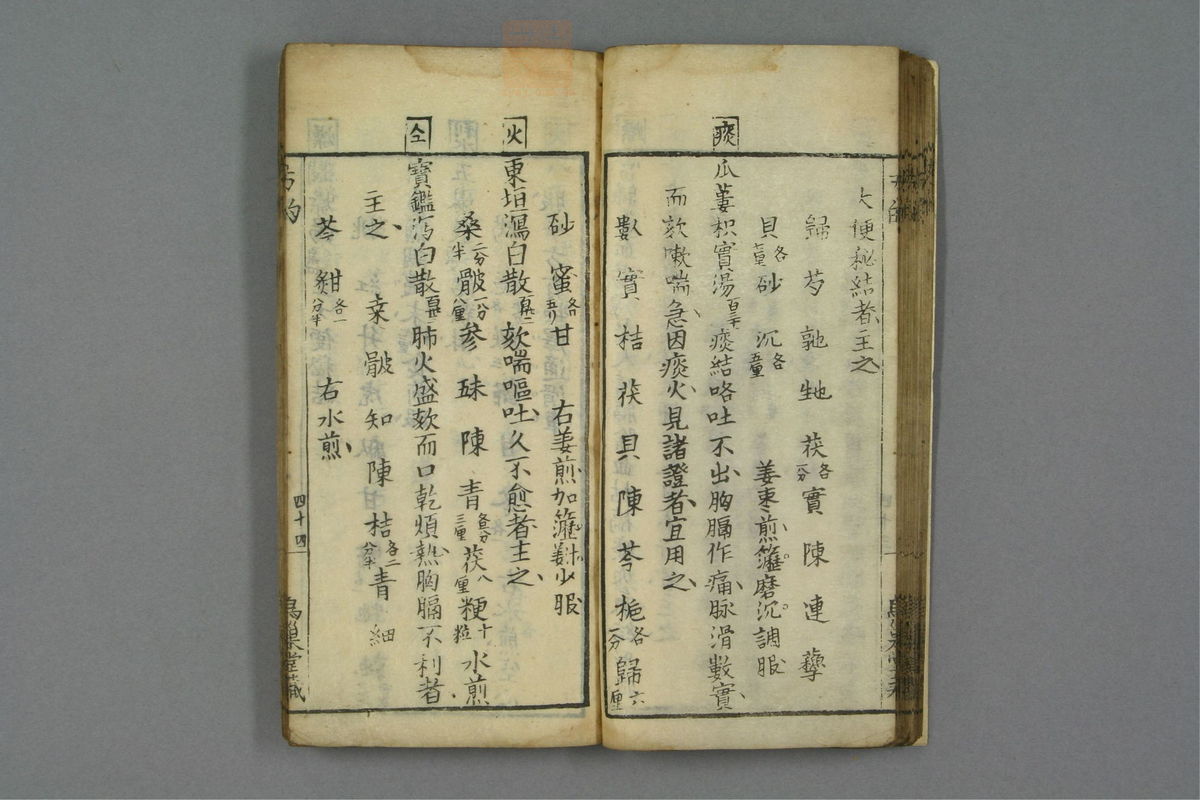 大便秘結者主之
歸 芍 乹 虵 茯各一分 實 陳 連 蘗
貝各七厘 砂 沉各五厘 姜枣煎籮磨沉調服
痰 瓜蔞枳實湯百三十 痰結咯吐不出胸膈作痛脉滑數實
而欬嗽喘急因痰火見諸證者宜用之
數 實 桔 茯 貝 陳 芩 梔各一分 歸六厘
砂 蜜各五リ 甘 右姜煎加籮姜汁少服
火 東垣瀉白散 欬喘嘔吐久不愈者主之
桑二分半 骰一分八厘 参 味 陳 青各五分三厘 茯八厘 粳十粒 水煎
仝 寶鑑泻白散 肺火盛欬而口乾煩熱胸膈不利者
主之 桒 骰 知 陳 桔各二分半 青 細
芩 甘各一分半 右水煎
四十四